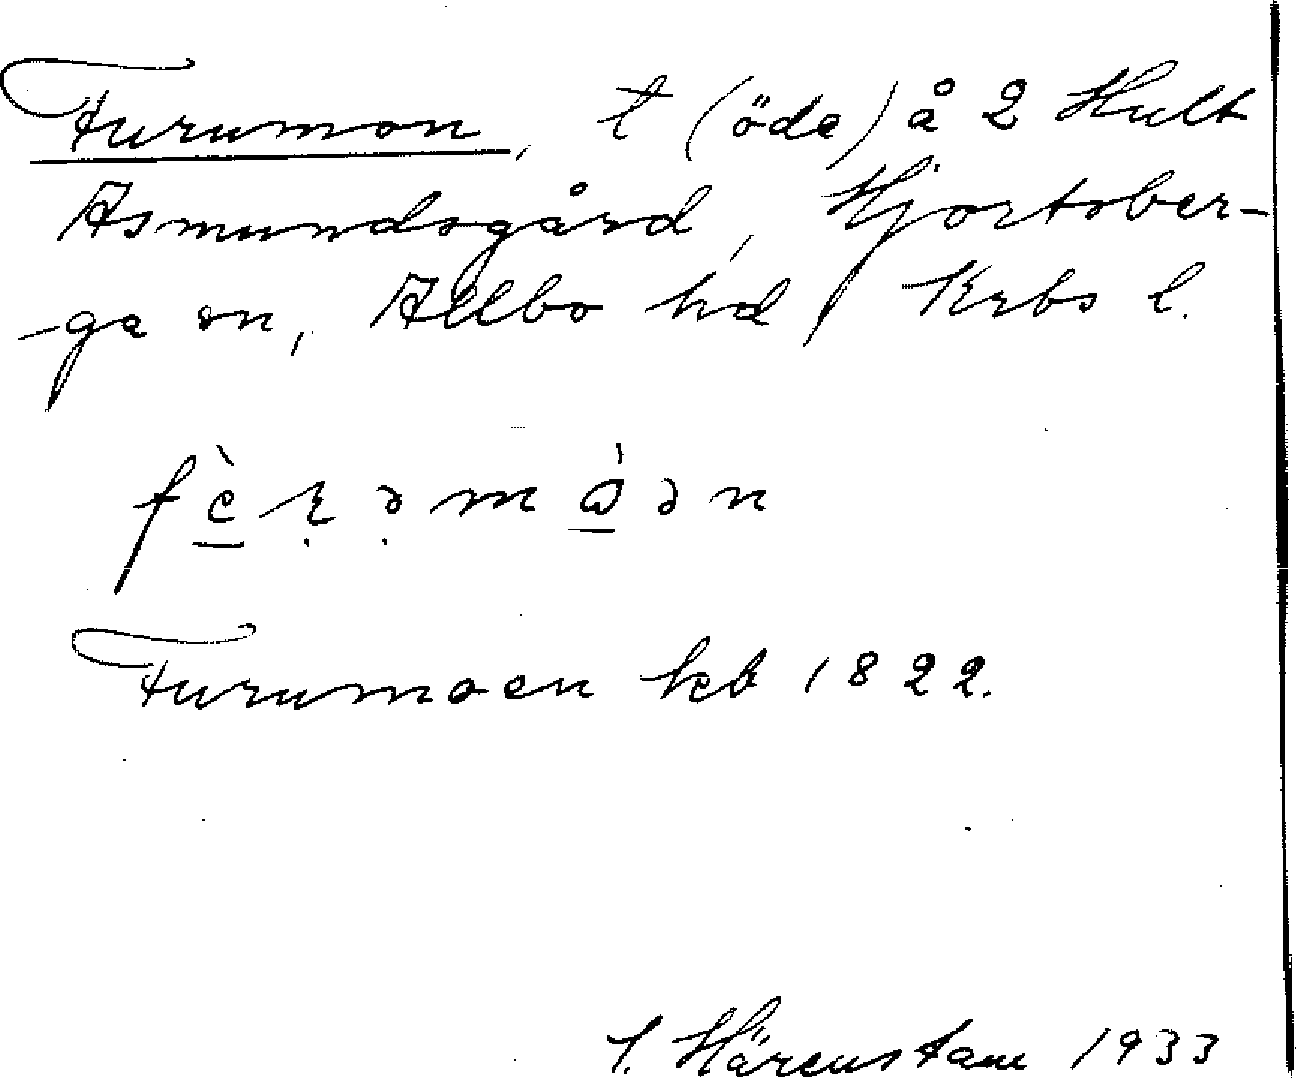 Furumon, t (öde) å 2 Hult
Asmundsgård, Hjortsber-
-ga sn, Allbo hd, Krbs l.
Furumoen kb 1822.
Härenstam 1933